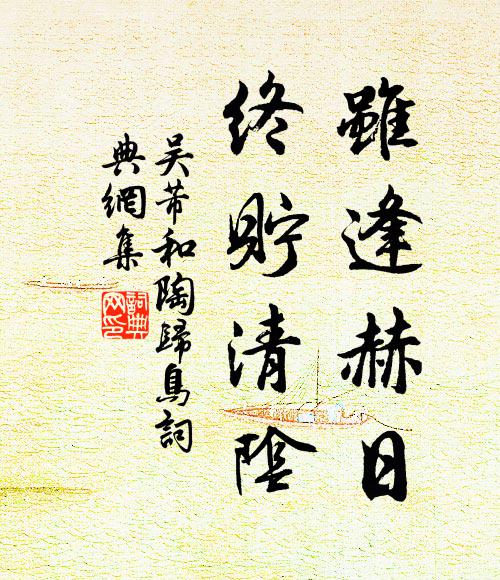 雖逢赫日
終貯清陰
吴芾和陶歸鳥詞
典網集
詞典
网印